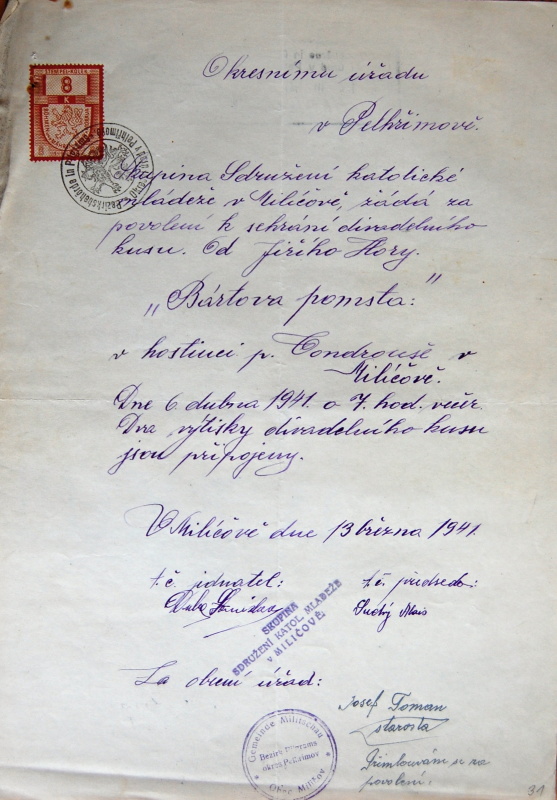 STEMPEL-KOLEK
8
K
Okresnímu úřadu
v Pelhřimově.
Skupina Sdružení katolické
mládeže v Milíčově, žádá za
povolení k sehrání divadelního
kusu. Od Jiřího Hory.
„Bártova pomsta:"
v hostinci p. Condrouše v
Milíčově.
Dne 6. dubna 1941. o 7. hod. večr.
Dva výtisky divadelního kusu
jsou připojeny.
V Milíčově dne 13 března 1941.
t.č. jednatel: t.č. předseda:
Suchý Alois
SKUPINA
SDRUŽENÍ KATOL. MLÁDEŽE
v MILÍČOVĚ
Za obecní úřad:
Josef Toman
starosta
Přimlouvám se za
povolení.
Gemeinde Militschau
Bezirk Pilgrams
okres Pelhřimov
Obec Milíčov
31